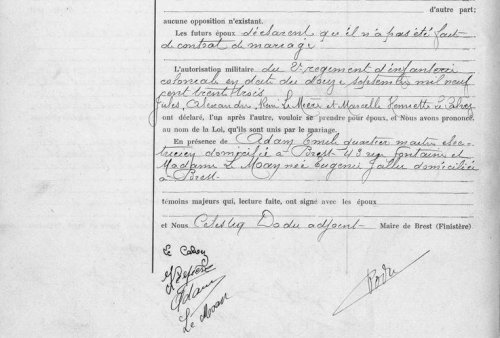 d'autre part;
aucune opposition n'existant.
Les futurs époux déclarent qu'il n'a pas été fait
de contrat de mariage
L'autorisation militaire du 2e regiment d'infanterie
colonial en date du douze septembre mil neuf
cent trente trois
Jules, Alexandre, Le et Marcelle Henriette Le
ont déclaré, l'un après l'autre, vouloir se prendre pour époux, et Nous avons prononcé,
au nom de la Loi, qu'ils sont unis par le mariage.
En présence de Adam Emile quartier maitre elec-
tricien domicilié à Brest 43 rue Fontaine et
Madame Le Moan née Eugenie domiciliée
à Brest
témoins majeurs qui, lecture faite, ont signé avec les époux
et Nous Dodu adjoint Maire de Brest (Finistère)
Adam
Le Moan
Dodu